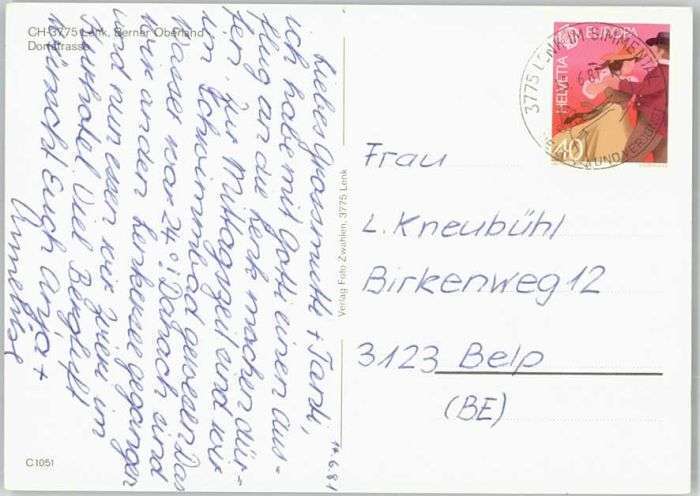 CH-3775 Lenk, Berner Oberland
Dorfstrasse
14.6.81
Liebes Grosmutti + Tanti,
ich habe mit Gotti einen aus-
flug an die Lenk machen dür-
fen. Zur Mittagszeit sind wir
im Schwimmbad gewesen. Das
Wasser war 24°! Danach sind
wir an den Lenkersee gegangen
und nun essen wir Zvieri im
Kurhotel. Viel Bergluft
wünscht Euch Anja +
Annelise
Verlag Foto Zwahlen, 3775 Lenk
C 1051
HELVETIA
EUROPA
40
3775 LENK IM SIMMENTAL
6.81
Frau
L. Kneubühl
Birkenweg 12
3123 Belp
(BE)